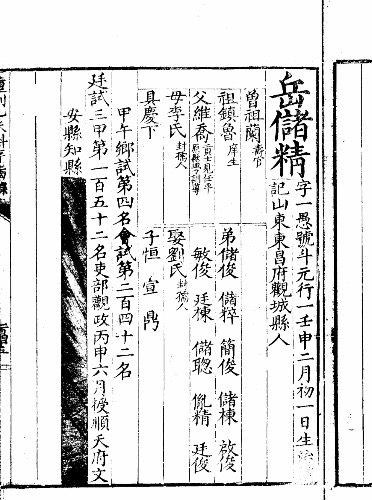 岳儲精
字一愚號斗元行一壬申二月初一日生
記山東東昌府觀城縣人
曾祖蘭 壽官
祖鎮魯 庠生
父維喬
母李氏 封孺人
具慶下
弟儲俊 儲粹 簡俊 儲棟 啟俊
敏俊 廷棟 儲聰 俔精 廷俊
娶劉氏 封孺人
子恒 宣 鼎
甲午鄉試第四名會試第二百四十二名
廷試三甲第一百五十二名吏部觀政丙申六月授順天府文
安縣知縣